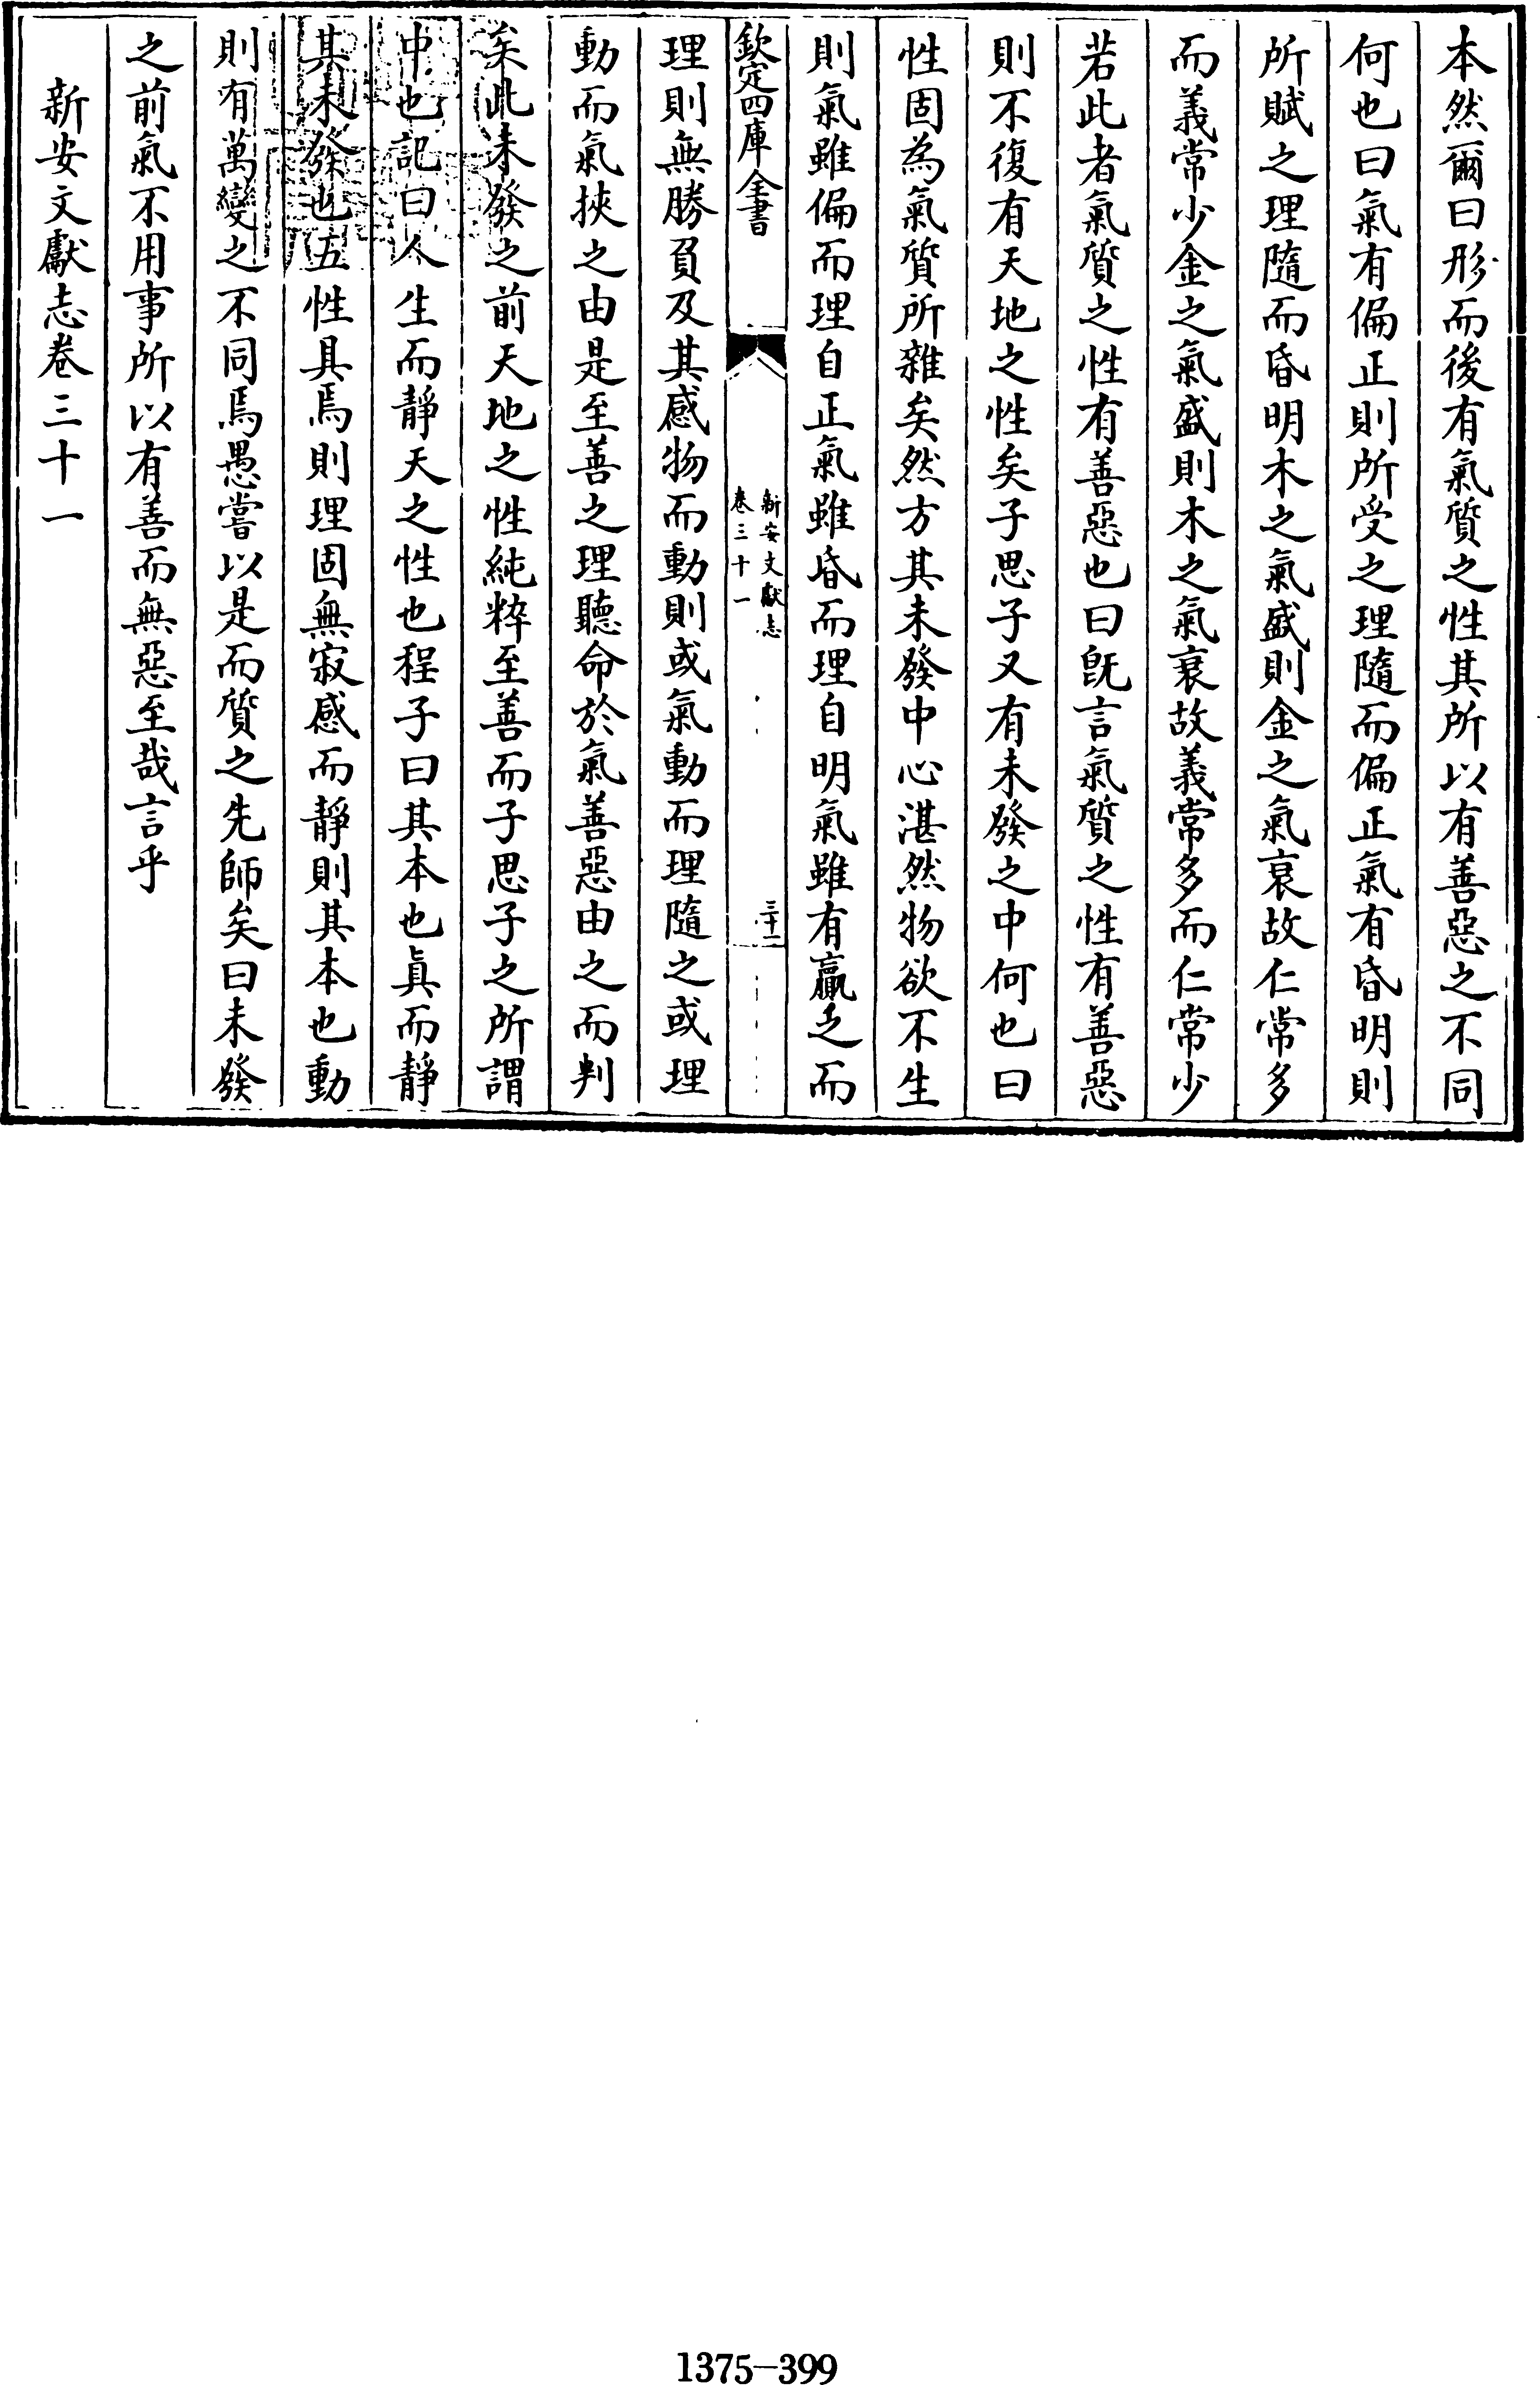 本然爾曰形而後有氣質之性其所以有善惡之不同
何也曰氣有偏正則所受之理隨而偏正氣有昏明則
所賦之理隨而昏明木之氣盛則金之氣衰故仁常多
而義常少金之氣盛則木之氣衰故義常多而仁常少
若此者氣質之性有善惡也曰旣言氣質之性有善惡
則不復有天地之性矣子思子又有未發之中何也曰
性固為氣質所雜矣然方其未發中心湛然物欲不生
則氣雖偏而理自正氣雖昏而理自明氣雖有贏乏而
欽定四庫全書
新安文獻志
卷三十一
三十二
理則無勝負及其感物而動則或氣動而理隨之或理
動而氣挾之由是至善之理聽命於氣善惡由之而判
矣此未發之前天地之性純粹至善而子思子之所謂
中也記曰人生而靜天之性也程子曰其本也眞而靜
其未發也五性具焉則理固無寂感而靜則其本也動
則有萬變之不同焉愚嘗以是而質之先師矣曰未發
之前氣不用事所以有善而無惡至哉言乎
新安文獻志卷三十一
1375-399